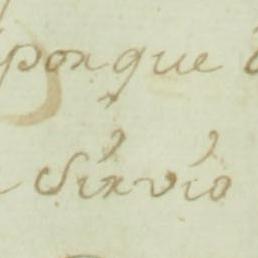 porque
Sirvio